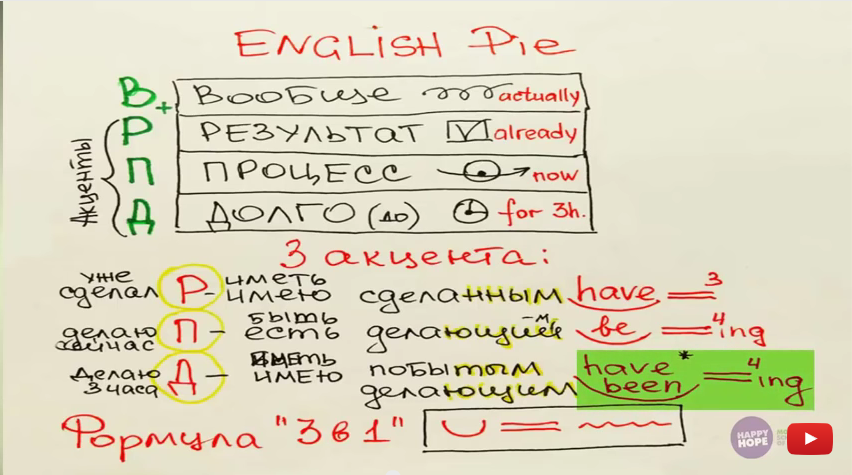 ENGLISH Pie
В + Вообще actually
Р РЕЗУЛЬТАТ V already
П ПРОЦЕСС now
Д ДОЛГО (до) for 3h.
Акценты
3 акцента:
уже сделал Р - иметь имею сделанным have 3
делаю сейчас П - быть есть делающим be 4 ing
Делаю 3 часа Д - иметь имею побытым делающим have been * 4 ing
Формула "3 в 1"
HAPPY HOPE